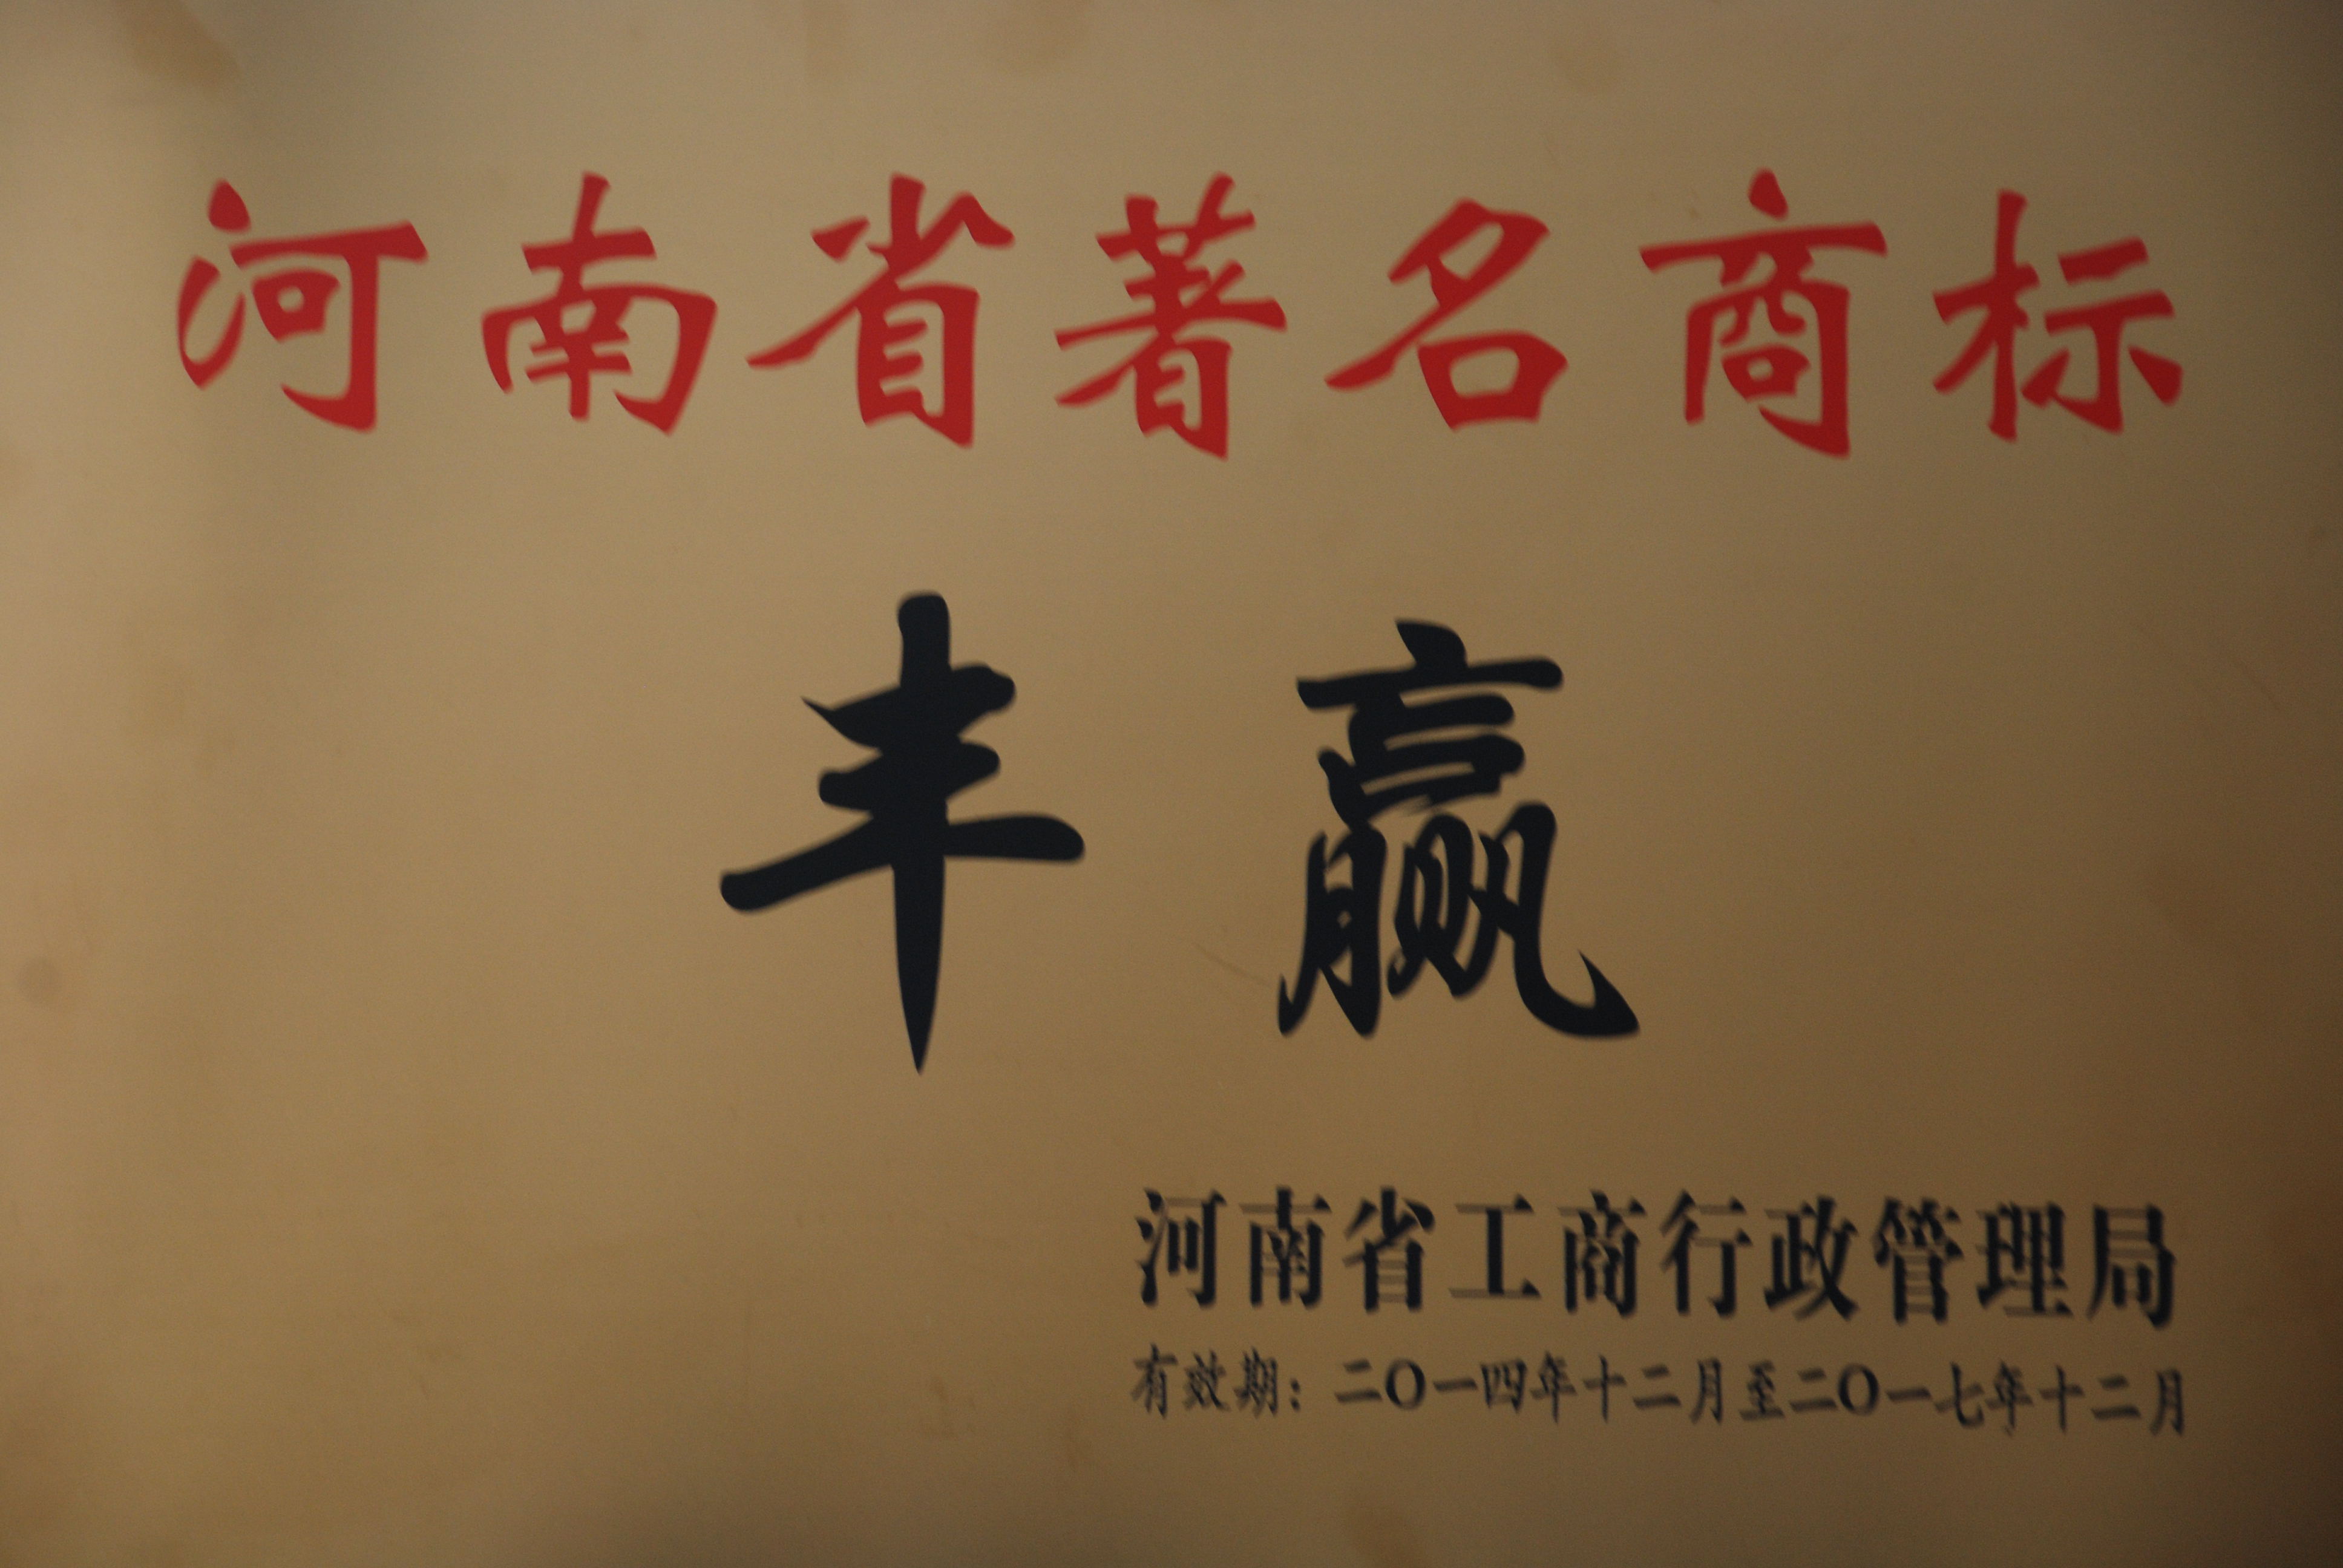 河南省著名商标
丰赢
河南省工商行政管理局
有效期：二〇一四年十二月至二〇一七年十二月